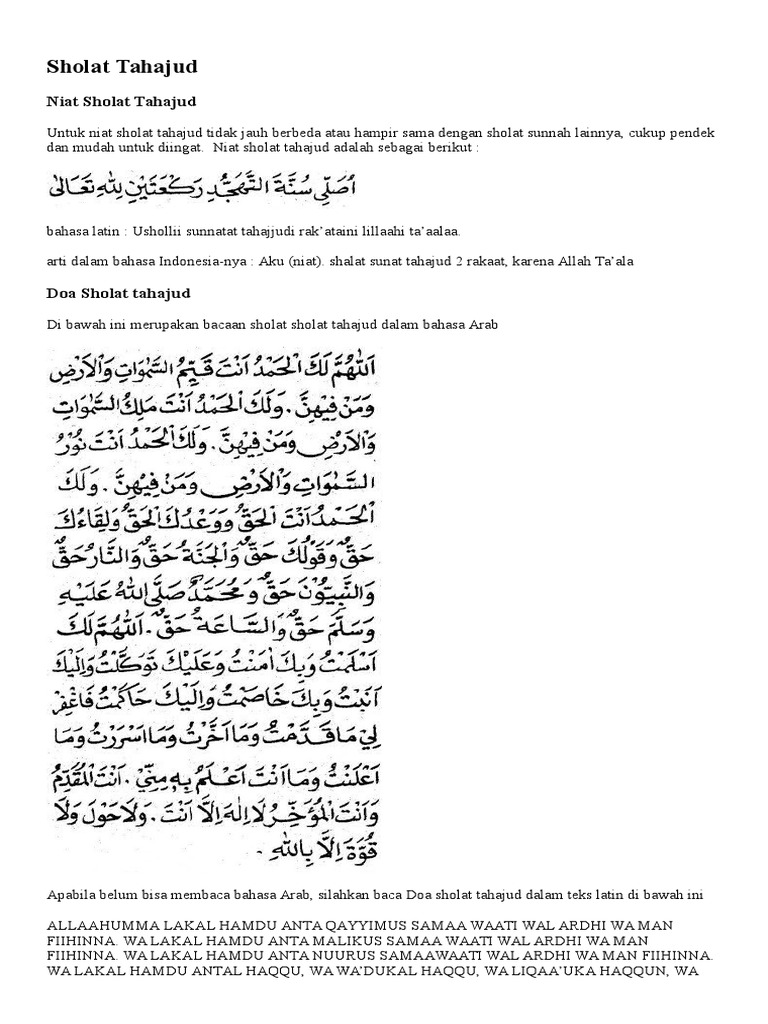 Sholat Tahajud
Niat Sholat Tahajud
Untuk niat sholat tahajud tidak jauh berbeda atau hampir sama dengan sholat sunnah lainnya, cukup pendek
dan mudah untuk diingat.  Niat sholat tahajud adalah sebagai berikut :
اُصَلِّى سُنَّةَ التَّهَجُّدِ رَكْعَتَيْنِ لِلّٰهِ تَعَالٰى
bahasa latin : Ushollii sunnatat tahajjudi rak’ataini lillaahi ta’aalaa.
arti dalam bahasa Indonesia-nya : Aku (niat). shalat sunat tahajud 2 rakaat, karena Allah Ta’ala
Doa Sholat tahajud
Di bawah ini merupakan bacaan sholat sholat tahajud dalam bahasa Arab
اَللّٰهُمَّ لَكَ الْحَمْدُ اَنْتَ قَيِّمُ السَّمٰوَاتِ وَالْاَرْضِ
وَمَنْ فِيْهِنَّ . وَلَكَ الْحَمْدُ اَنْتَ مَلِكُ السَّمٰوَاتِ
وَالْاَرْضِ وَمَنْ فِيْهِنَّ . وَلَكَ الْحَمْدُ اَنْتَ نُوْرُ
السَّمٰوَاتِ وَالْاَرْضِ وَمَنْ فِيْهِنَّ . وَلَكَ
الْحَمْدُ اَنْتَ الْحَقُّ وَوَعْدُكَ الْحَقُّ وَلِقَاءُكَ
حَقٌّ وَقَوْلُكَ حَقٌّ وَالْجَنَّةُ حَقٌّ وَالنَّارُ حَقٌّ
وَالنَّبِيُّوْنَ حَقٌّ وَمُحَمَّدٌ صَلَّى اللهُ عَلَيْهِ
وَسَلَّمَ حَقٌّ وَالسَّاعَةُ حَقٌّ . اَللّٰهُمَّ لَكَ
اَسْلَمْتُ وَبِكَ اٰمَنْتُ وَعَلَيْكَ تَوَكَّلْتُ وَاِلَيْكَ
اَنَبْتُ وَبِكَ خَاصَمْتُ وَاِلَيْكَ حَاكَمْتُ فَاغْفِرْ
لِيْ مَا قَدَّمْتُ وَمَا اَخَّرْتُ وَمَا اَسْرَرْتُ وَمَا
اَعْلَنْتُ وَمَا اَنْتَ اَعْلَمُ بِهٖ مِنِّيْ . اَنْتَ الْمُقَدِّمُ
وَاَنْتَ الْمُؤَخِّرُ لَا اِلٰهَ اِلَّا اَنْتَ . وَلَا حَوْلَ وَلَا
قُوَّةَ اِلَّا بِاللهِ .
Apabila belum bisa membaca bahasa Arab, silahkan baca Doa sholat tahajud dalam teks latin di bawah ini
ALLAAHUMMA LAKAL HAMDU ANTA QAYYIMUS SAMAA WAATI WAL ARDHI WA MAN
FIIHINNA. WA LAKAL HAMDU ANTA MALIKUS SAMAA WAATI WAL ARDHI WA MAN
FIIHINNA. WA LAKAL HAMDU ANTA NUURUS SAMAAWAATI WAL ARDHI WA MAN FIIHINNA.
WA LAKAL HAMDU ANTAL HAQQU, WA WA’DUKAL HAQQU, WA LIQAA’UKA HAQQUN, WA